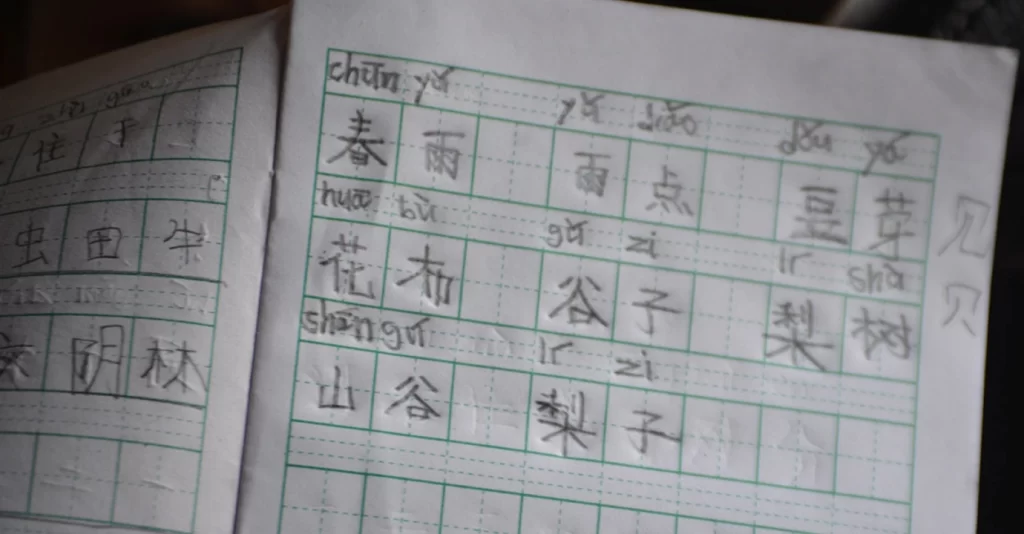 住 于
虫 田 牛
阴 林
chūn yǔ yǔ diǎn dòu yá
春 雨 雨 点 豆 芽 见
huā bù gǔ zi lí shù
花 布 谷 子 梨 树 贝
shān gǔ lí zi
山 谷 梨 子